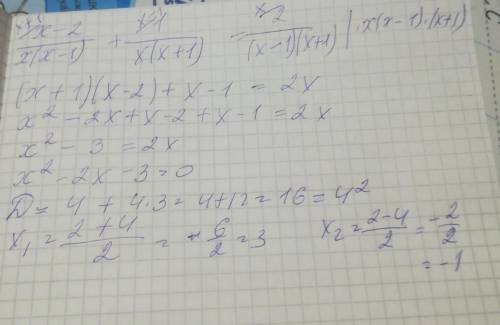 x+1/ x-2/x(x-1) + x-1/ 1/x(x+1) = x/ 2/(x-1)(x+1) | · x(x-1)·(x+1)
(x+1)(x-2)+x-1 = 2x
x²-2x+x-2+x-1=2x
x²-3=2x
x²-2x-3=0
D= 4+4·3=4+12=16=4²
x₁ = (2+4)/2 = 6/2 = 3    x₂ = (2-4)/2 = -2/2
= -1